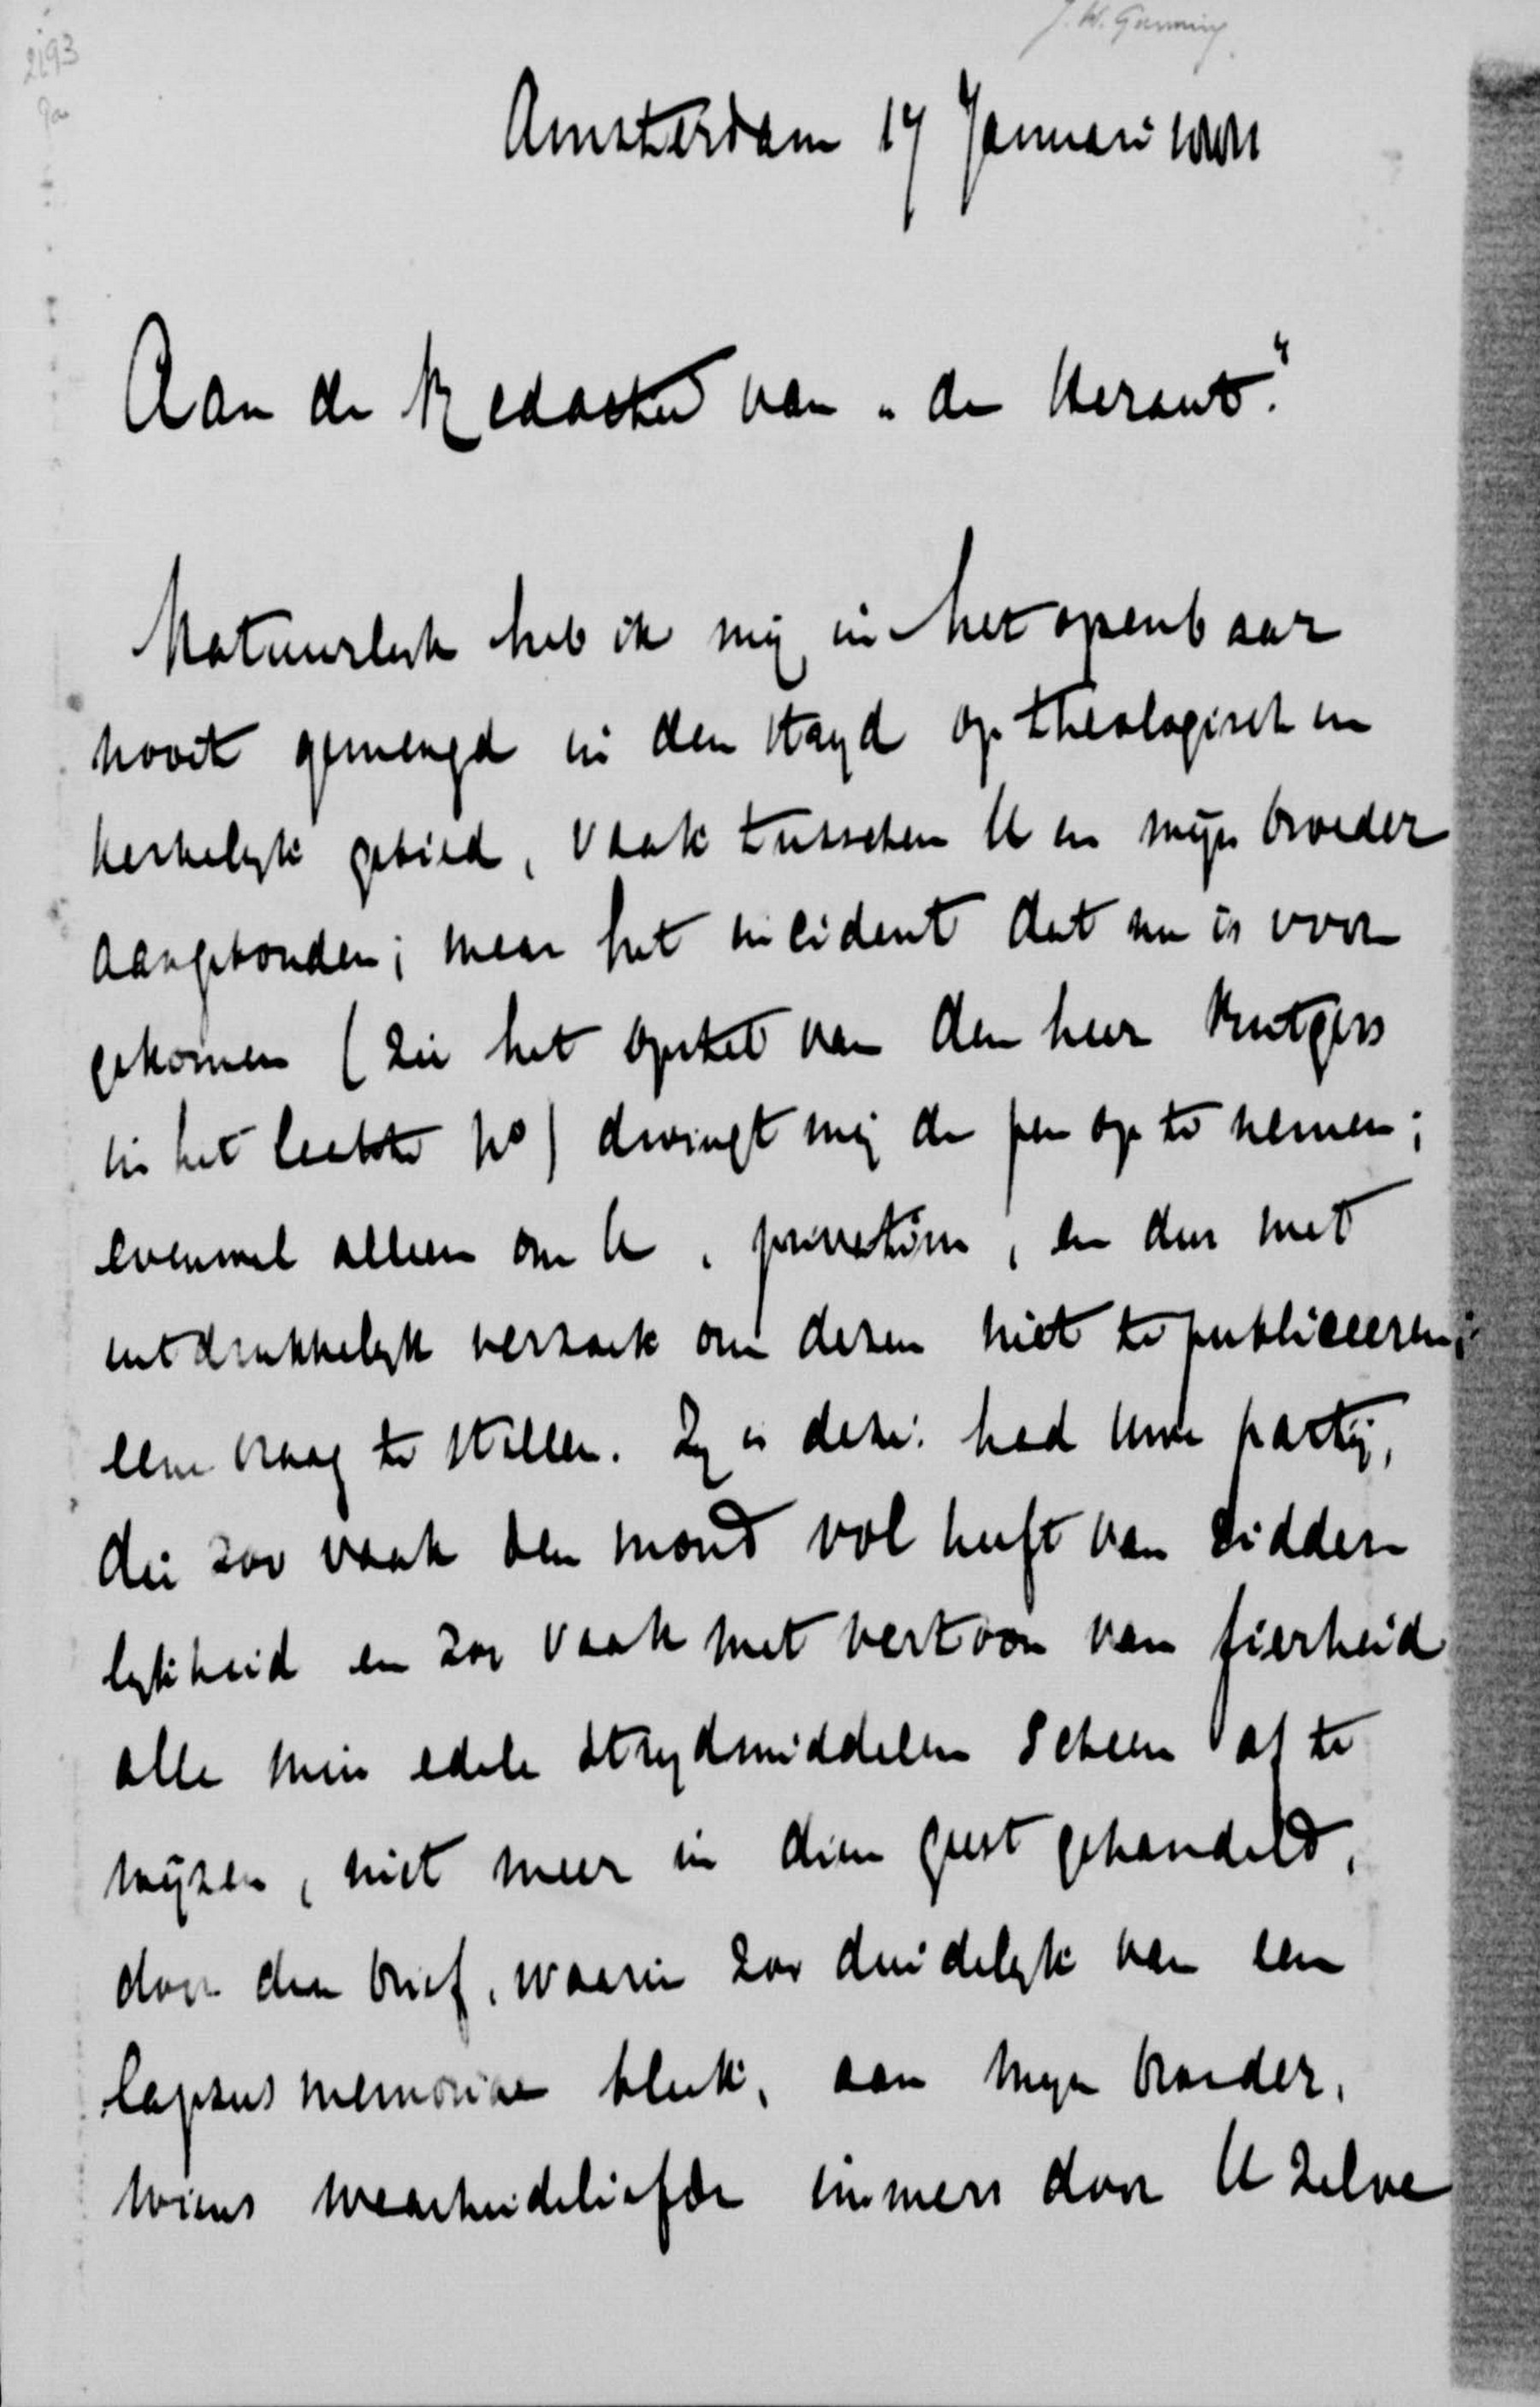 J. W. Gunning
2193
Amsterdam 17 Januari
Aan de Redactie van „de Heraut."
Natuurlijk heb ik mij in het openbaar
nooit gemengd in den strijd op theologisch en
kerkelijk gebied, vaak tusschen U en mijn broeder
aangebonden; maar het incident dat nu is voor
gekomen (zie het opstel van den heer Rutgers
in het laatste No) dwingt mij de pen op te nemen;
evenwel alleen om U, privatim, en dus met
uitdrukkelijk verzoek om dezen niet te publiceeren,
eene vraag te stellen. Zij is deze: had Uwe partij,
die zoo vaak den mond vol heeft van ridder
lijkheid en zoo vaak met vertoon van fierheid
alle min edele strijdmiddelen scheen af te
wijzen, niet meer in dien geest gehandeld,
door den brief, waarin zoo duidelijk van een
lapsus memoriae bleek, aan mijn broeder,
wiens waarheidsliefde immers door U zelve